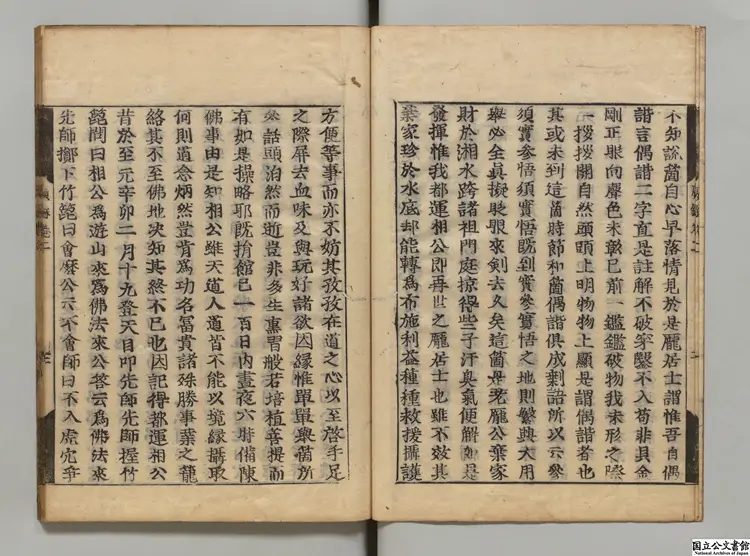 不知說箇自心早落情見於是龐居士謂惟吾自偶
諧言偶諧二字直是註解不破穿鑿不入苟非具金
剛正眼向聲色未彰已前一鑑鑑破物我未形之際
一拶拶關自然頭頭上明物物上顯是謂偶諧者也
其或未到這箇時節和箇偶諧俱成剩語所以云參
須實參悟須實悟既到實參實悟之地則繁興大用
舉必全真擬眨眼來劍去久矣這箇是老龐公棄家
財於湘水跨諸祖門庭掠得些子汗臭氣便解如是
發揮惟我都運相公即再世之龐居士也雖不效其
棄家珍於水底却能轉為布施利益種種救援攝護
方便等事而亦不妨其孜孜在道之心以至啓手足
之際屏去血味及與玩好諸欲因緣惟單單舉箇所
參話頭泊然而逝豈非多生熏習般若培植菩提而
有如是操略耶既捐館已一百日內晝夜六時備陳
佛事由是知相公雖天道人道皆不能以境緣攝取
何則道念炳然豈肯為功名富貴諸殊勝事業之龍
絡其不至佛地決知其終不已也因記得都運相公
昔於至元辛卯二月十九登天目叩先師先師握竹
篦問曰相公為遊山來為佛法來公答云為佛法來
先師擲下竹篦曰會麼公云不會師曰不入虎穴爭
国立公文書館
National Archives of Japan